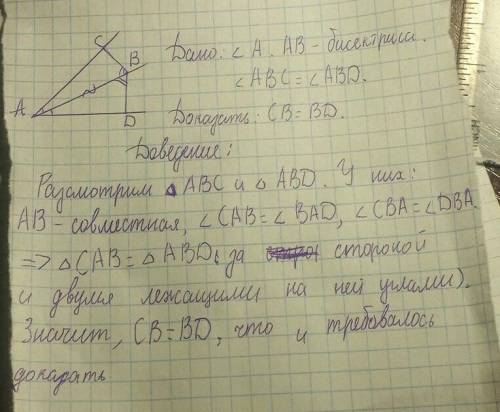 C
B
A
D
Дано: ∠ A. AB - бисектриса.
∠ ABC = ∠ ABD.
Доказать: CB = BD.
Доведение:
Разсмотрим △ ABC и △ ABD. У них:
AB - совместная, ∠ CAB = ∠ BAD, ∠ CBA = ∠ DBA.
=> △ CAB = △ ABD (за стороной
и двумя лежащими на ней углами).
Значит, CB = BD, что и требовалось
доказать